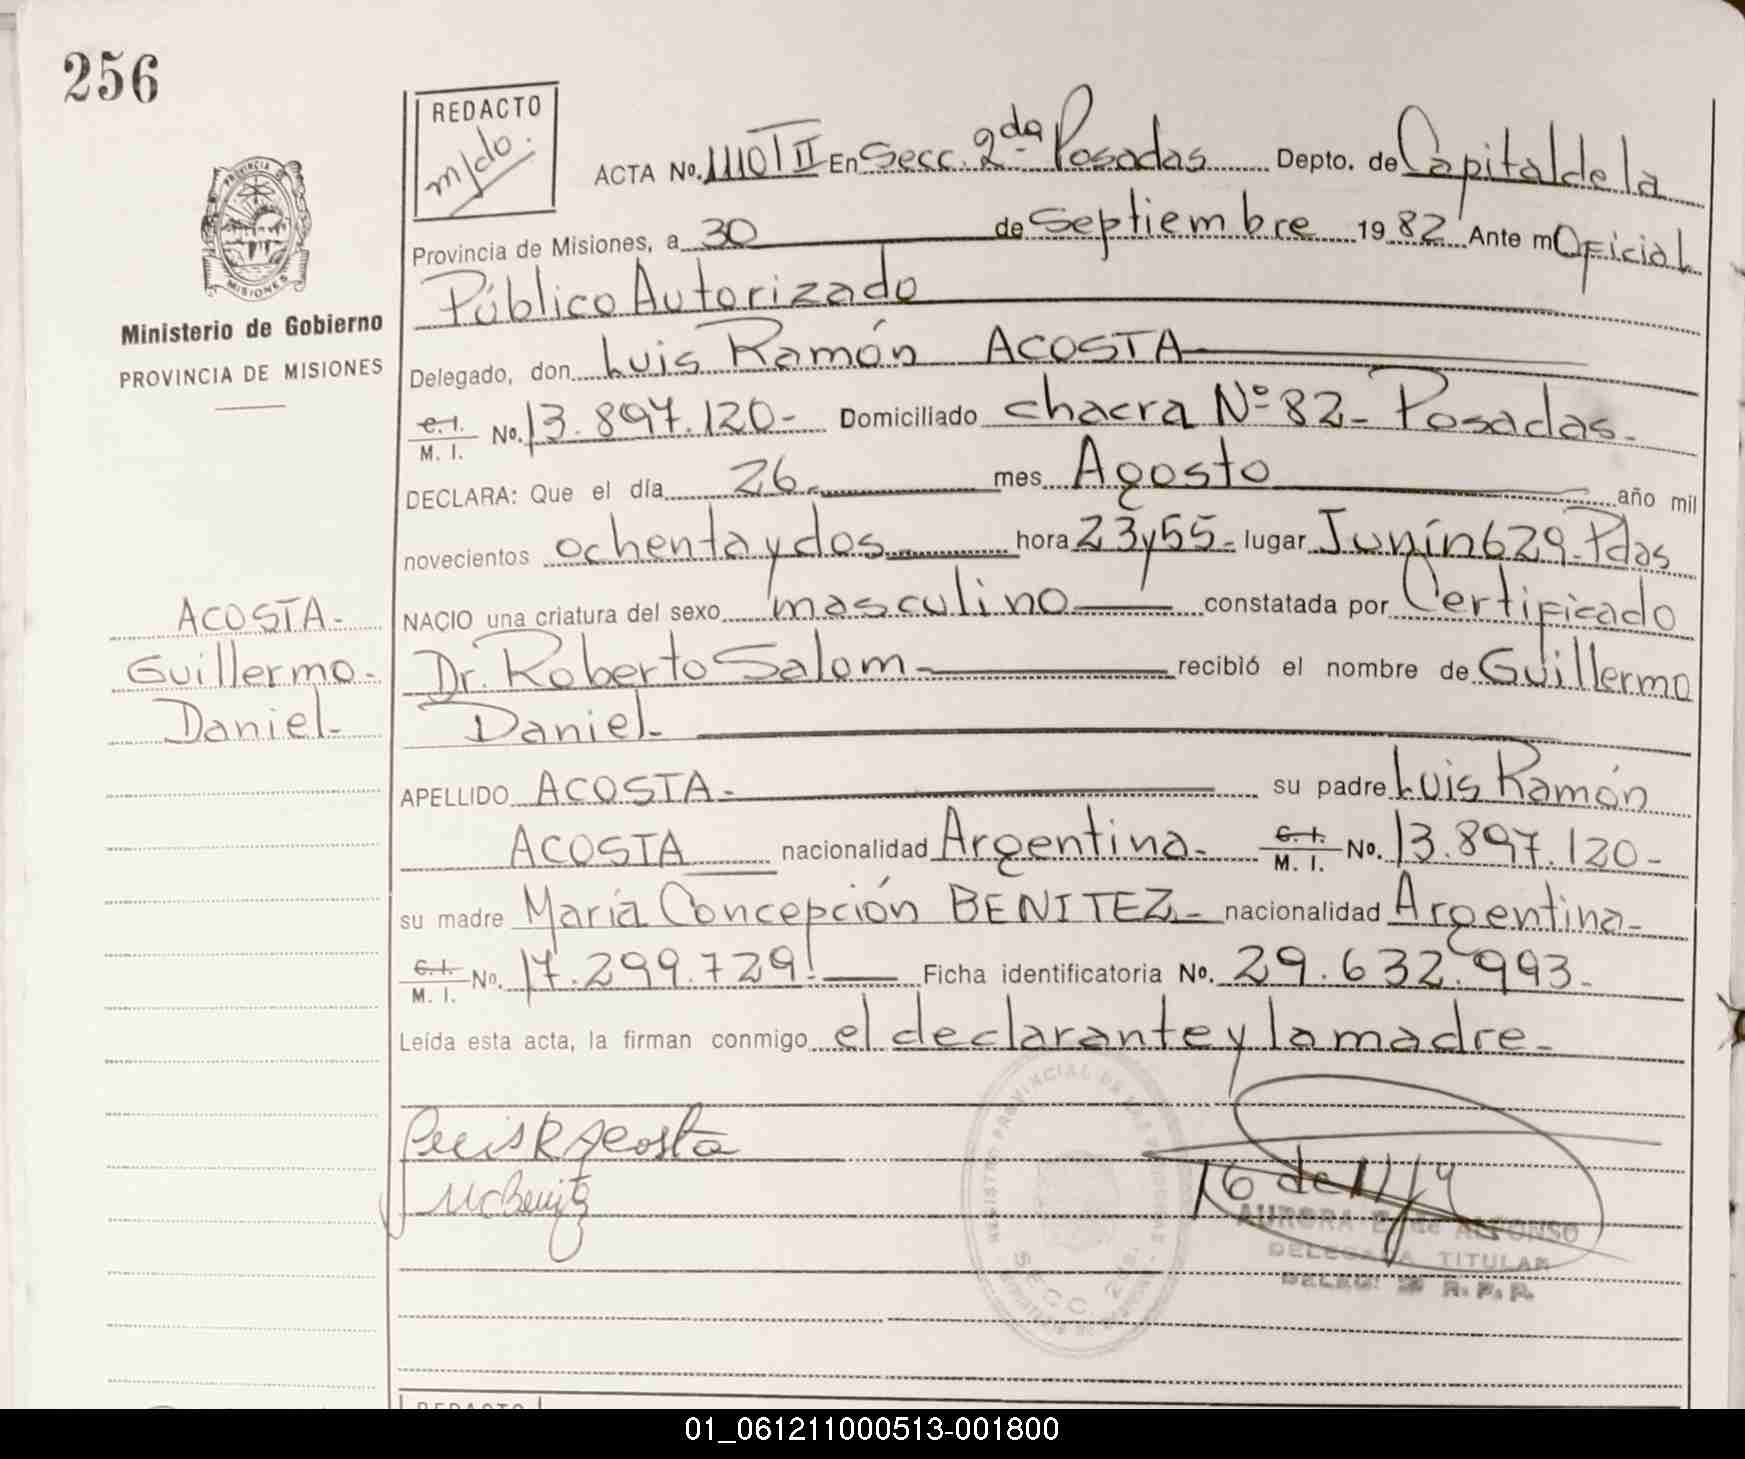 256
REDACTO
m/do.
PROVINCIA
MISIONES
Ministerio de Gobierno
PROVINCIA DE MISIONES
ACTA No. 1110 T II En Secc. 2da Posadas Depto. de Capital de la
Provincia de Misiones, a 30 de Septiembre 1982 Ante mí Oficial
Público Autorizado
Delegado, don Luis Ramón ACOSTA
C. I. / M. I. No. 13.897.120- Domiciliado chacra Nº 82- Posadas.
DECLARA: Que el día 26 mes Agosto año mil
novecientos ochenta y dos hora 23 y 55- lugar Junín 629-Pdas
NACIO una criatura del sexo masculino constatada por Certificado
Dr. Roberto Salom recibió el nombre de Guillermo
Daniel-
ACOSTA-
Guillermo-
Daniel-
APELLIDO ACOSTA- su padre Luis Ramón
ACOSTA nacionalidad Argentina- C. I. / M. I. No. 13.897.120-
su madre María Concepción BENITEZ- nacionalidad Argentina-
C. I. / M. I. No. 17.299.729- Ficha identificatoria No. 29.632.993-
Leída esta acta, la firman conmigo el declarante y la madre-
Luis R Acosta
MCBenitz
REGISTRO PROVINCIAL DE LAS PERSONAS
SECC. 2da.
AURORA ALFONSO
DELEGADA TITULAR
R. P. P.
REDACTO
01_061211000513-001800